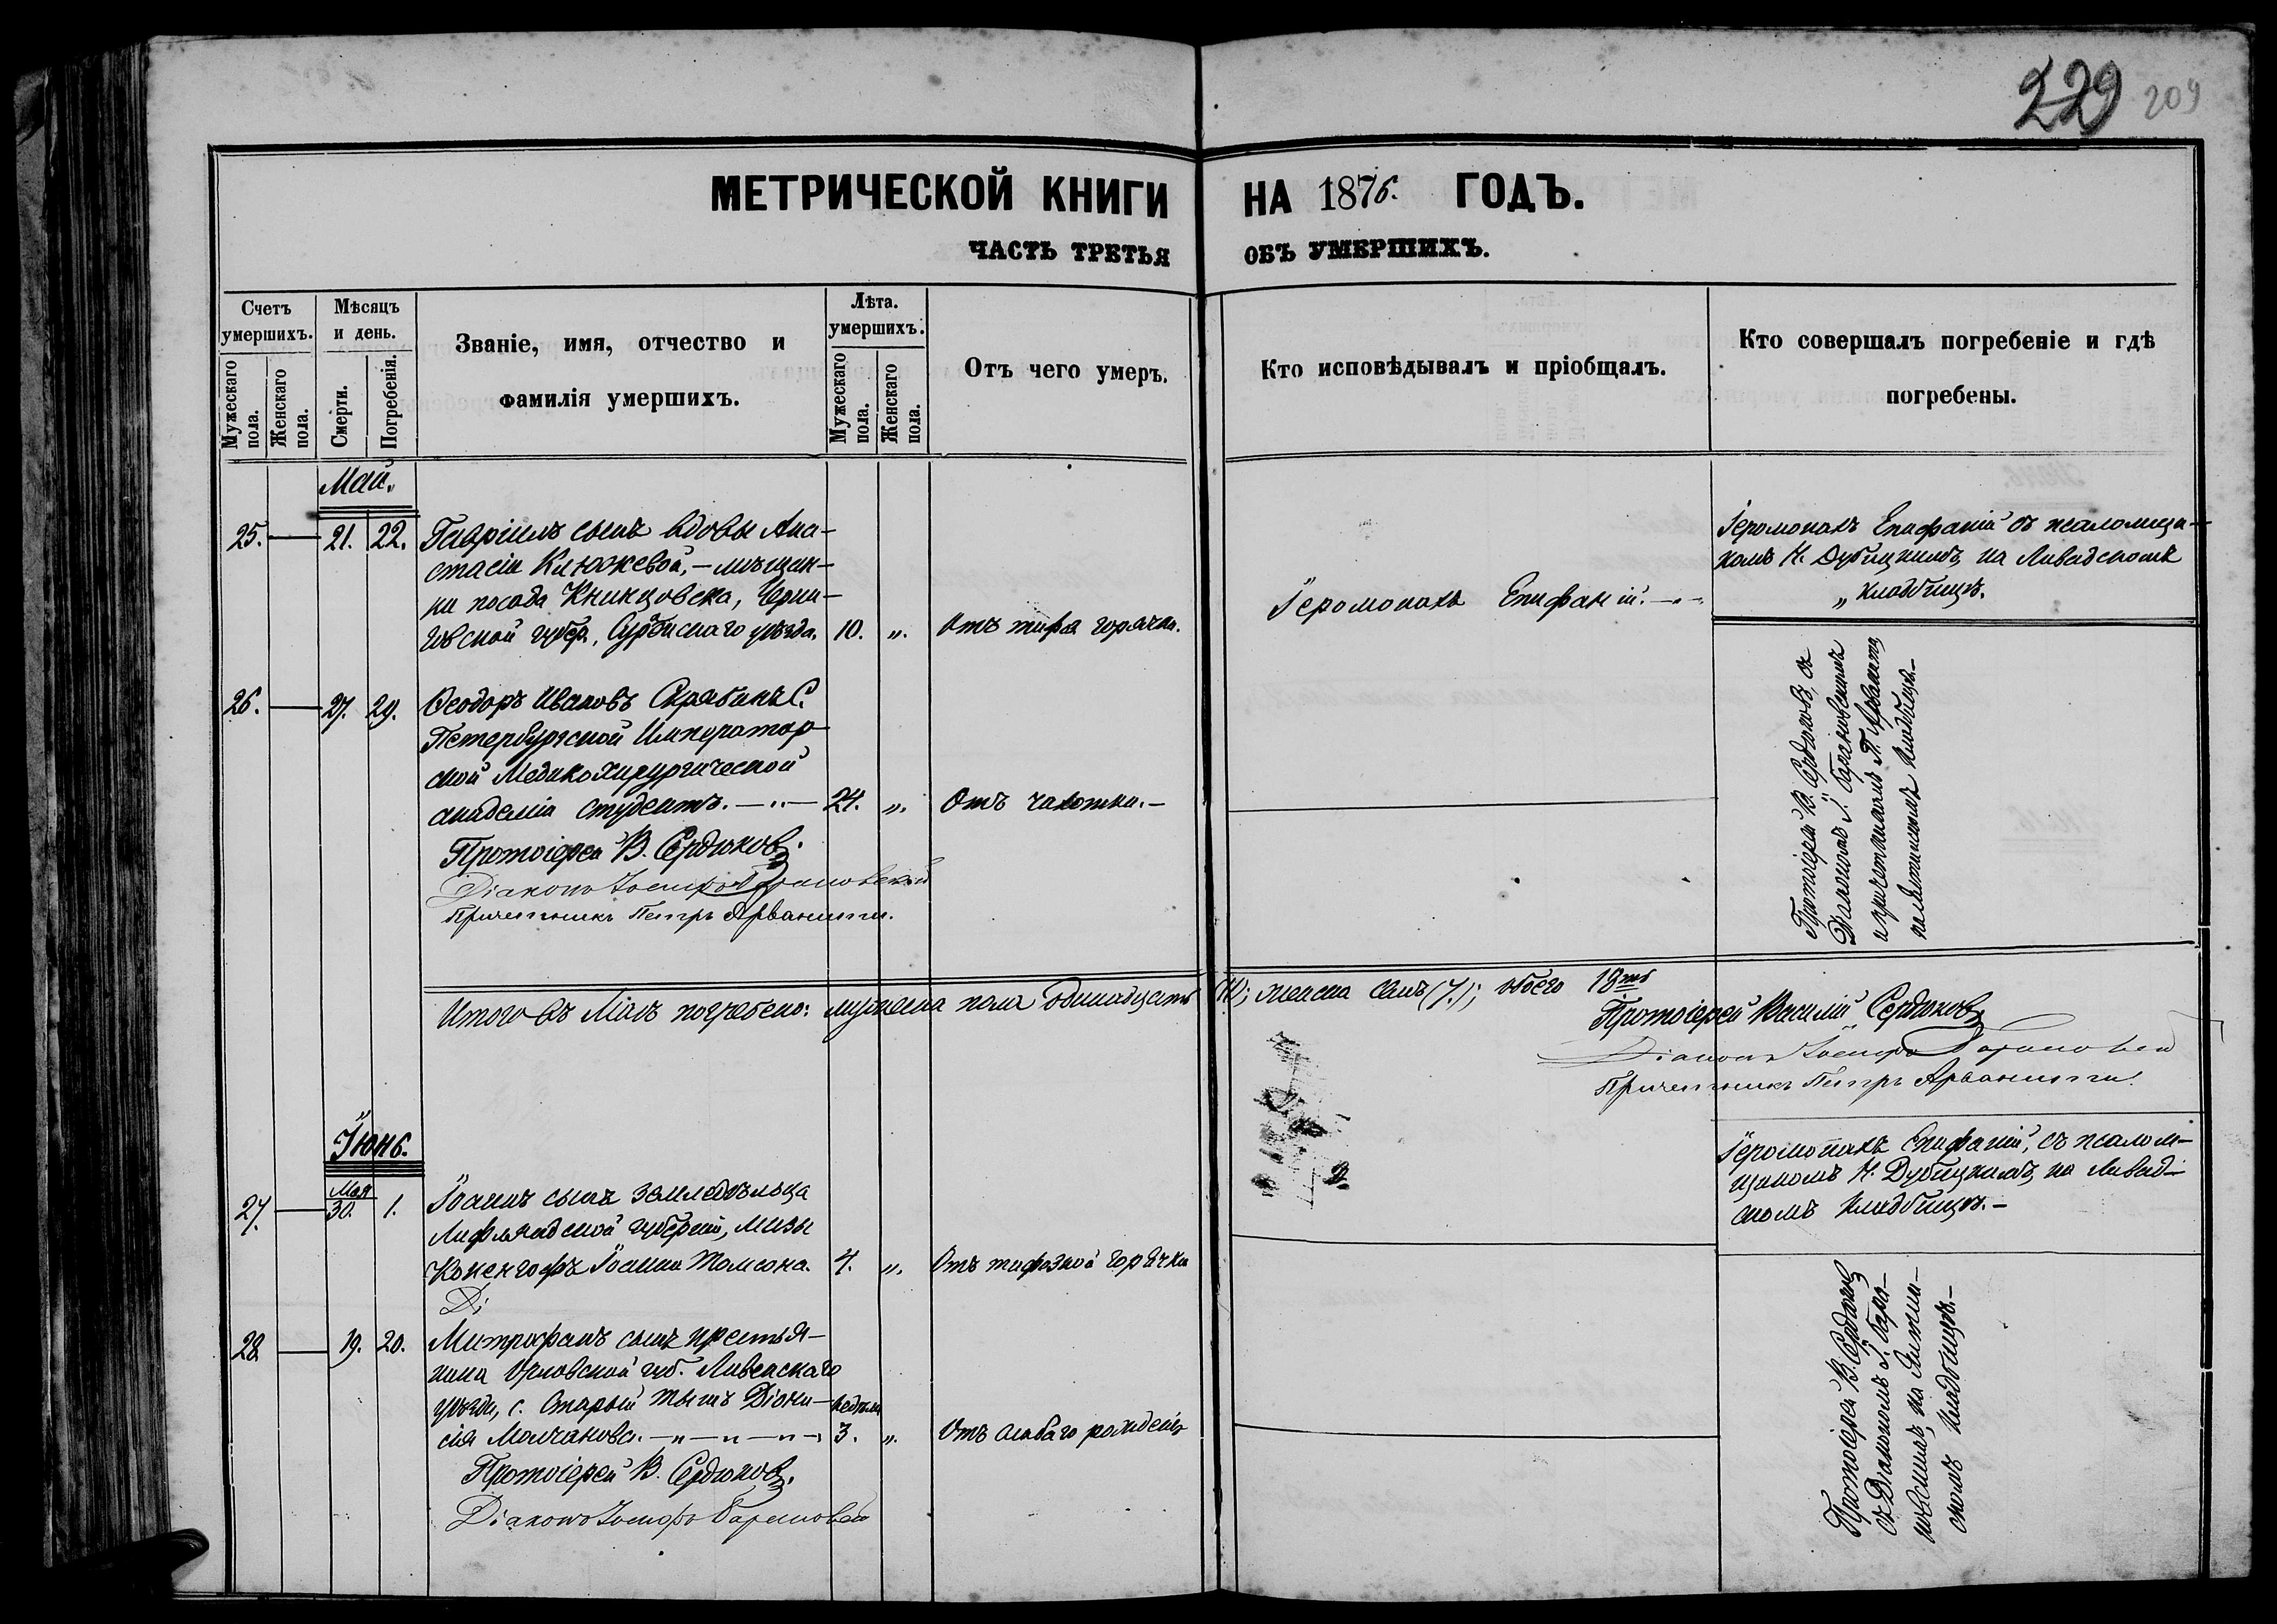 229 209
МЕТРИЧЕСКОЙ КНИГИ НА 1876. ГОДЪ.
ЧАСТЬ ТРЕТЬЯ ОБЪ УМЕРШИХЪ.
Счетъ умершихъ.
Мужескаго пола.
Женскаго пола.
Мѣсяцъ и день.
Смерти.
Погребенія.
Званіе, имя, отчество и
фамилія умершихъ.
Лѣта. умершихъ.
Мужескаго пола.
Женскаго пола.
Отъ чего умеръ.
Кто исповѣдывалъ и пріобщалъ.
Кто совершалъ погребеніе и гдѣ
погребены.
Май.
25. — 21. 22. Гавріилъ сынъ вдовы Ана-
стасіи Клюжевой, – мѣщан-
ки посада Клинцовска, Черни-
гвской губер. Суражскаго уѣзда. 10. „. Отъ тифа горячки.
Іеромонахъ Епифаній. —„—
Іеромонахъ Епифаній съ псаломщи-
комъ Н. Дубицкимъ, на Ливадскомъ
„ кладбищѣ.
26. — 27. 29. Ѳеодоръ Ивановъ Скрябинъ С.
Петербургской Император-
ской Медикохирургической
академіи студентъ. —„— 24. „. Отъ чахотки. –
Протоіерей В. Сердюковъ.
Діаконъ Іосифъ Барановскій
Причетникъ Петръ Арванити.
Протоіерей В. Сердюковъ, съ
Діакономъ І. Барановскимъ
и причетникомъ П. Арванити
кладбищѣ. –
Итого въ Маѣ погребено: мужеска пола одинадцать (11); женска семь (7.); обоего 18ть
Протоіерей Василій Сердюковъ
Діаконъ Іосифъ Барановскій
Причетникъ Петръ Арванити.
Іюнь.
27. — Мая 30. 1. Іоаннъ сынъ земледѣльца
Лифляндской губерніи, мызы
Конекгофъ Іоанна Томсона. 4. „. Отъ тифозной горячки
Ді
Іеромонахъ Епифаній, съ псалом-
щикомъ Н. Дубицкимъ, на Ливад-
скомъ кладбищѣ. –
28. — 19. 20. Митрофанъ сынъ крестья-
нина Орловской губ. Ливенскаго
уѣзда, с. Старый Тымъ Діони-
сія Молчанова. —„—„—„— недѣли 3. „. Отъ слабаго рожденія
Протоіерей В. Сердюковъ.
Діаконъ Іосифъ Барановскій
Протоіерей В. Сердюковъ
съ Діакономъ І. Бара-
новскимъ, на
скомъ кладбищѣ. –